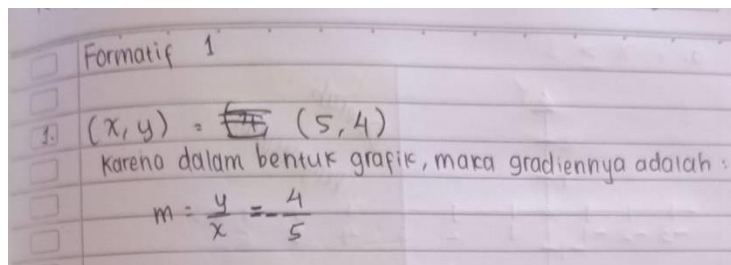 Formatif 1
1. (x, y) = (5, 4)
Karena dalam bentuk grafik, maka gradiennya adalah :
m = y/x = -4/5